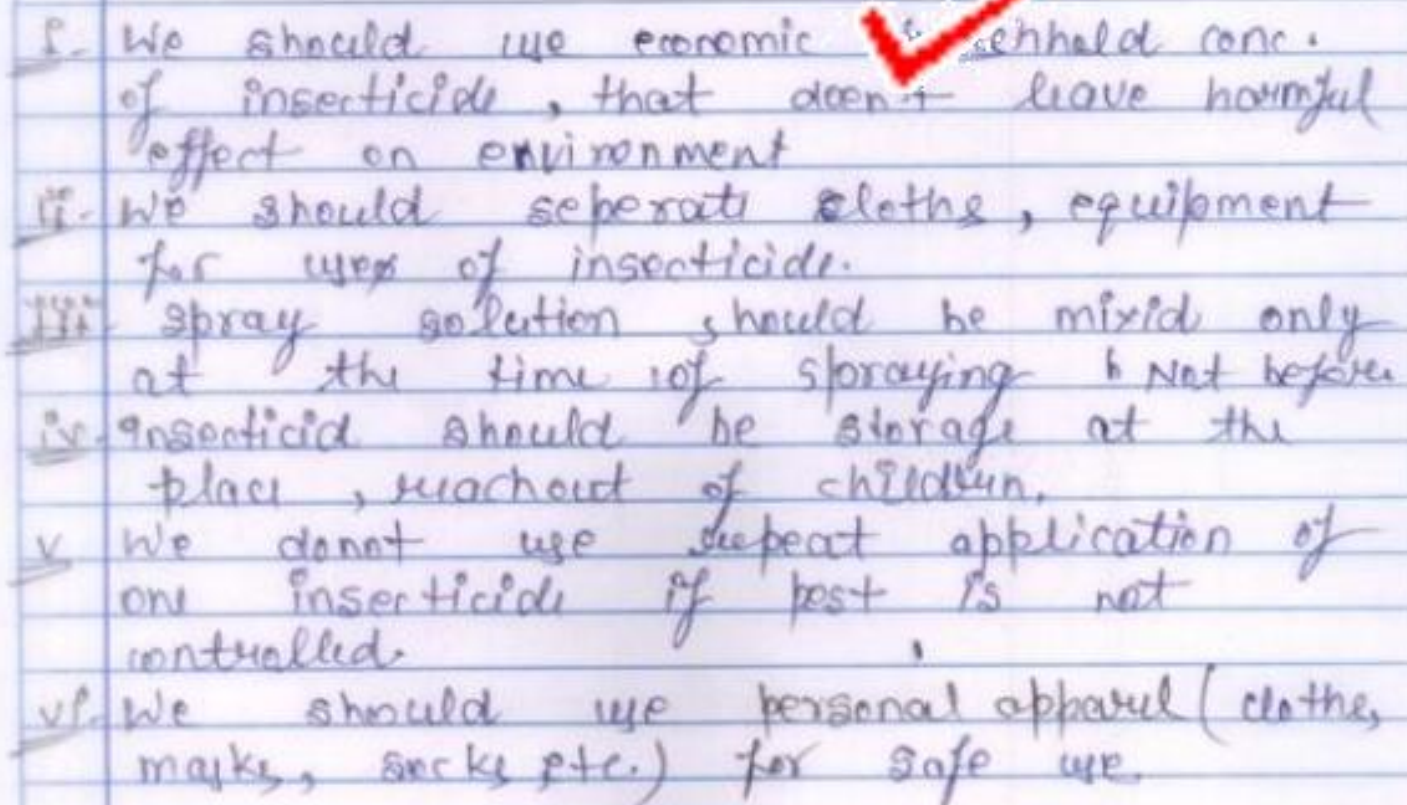 i. We should use economic conc.
of insecticide, that doen't leave harmful
effect on environment
ii. We should seperate cloths, equipment
for uses of insecticide.
iii. Spray solution should be mixid only
at the time of spraying Not before
iv. Insecticid should be storage at the
place, reachout of children.
v We donot use repeat application of
one insecticide if pest is not
controlled.
vi. We should use personal apparel (clothe,
masks, socks etc.) for safe use